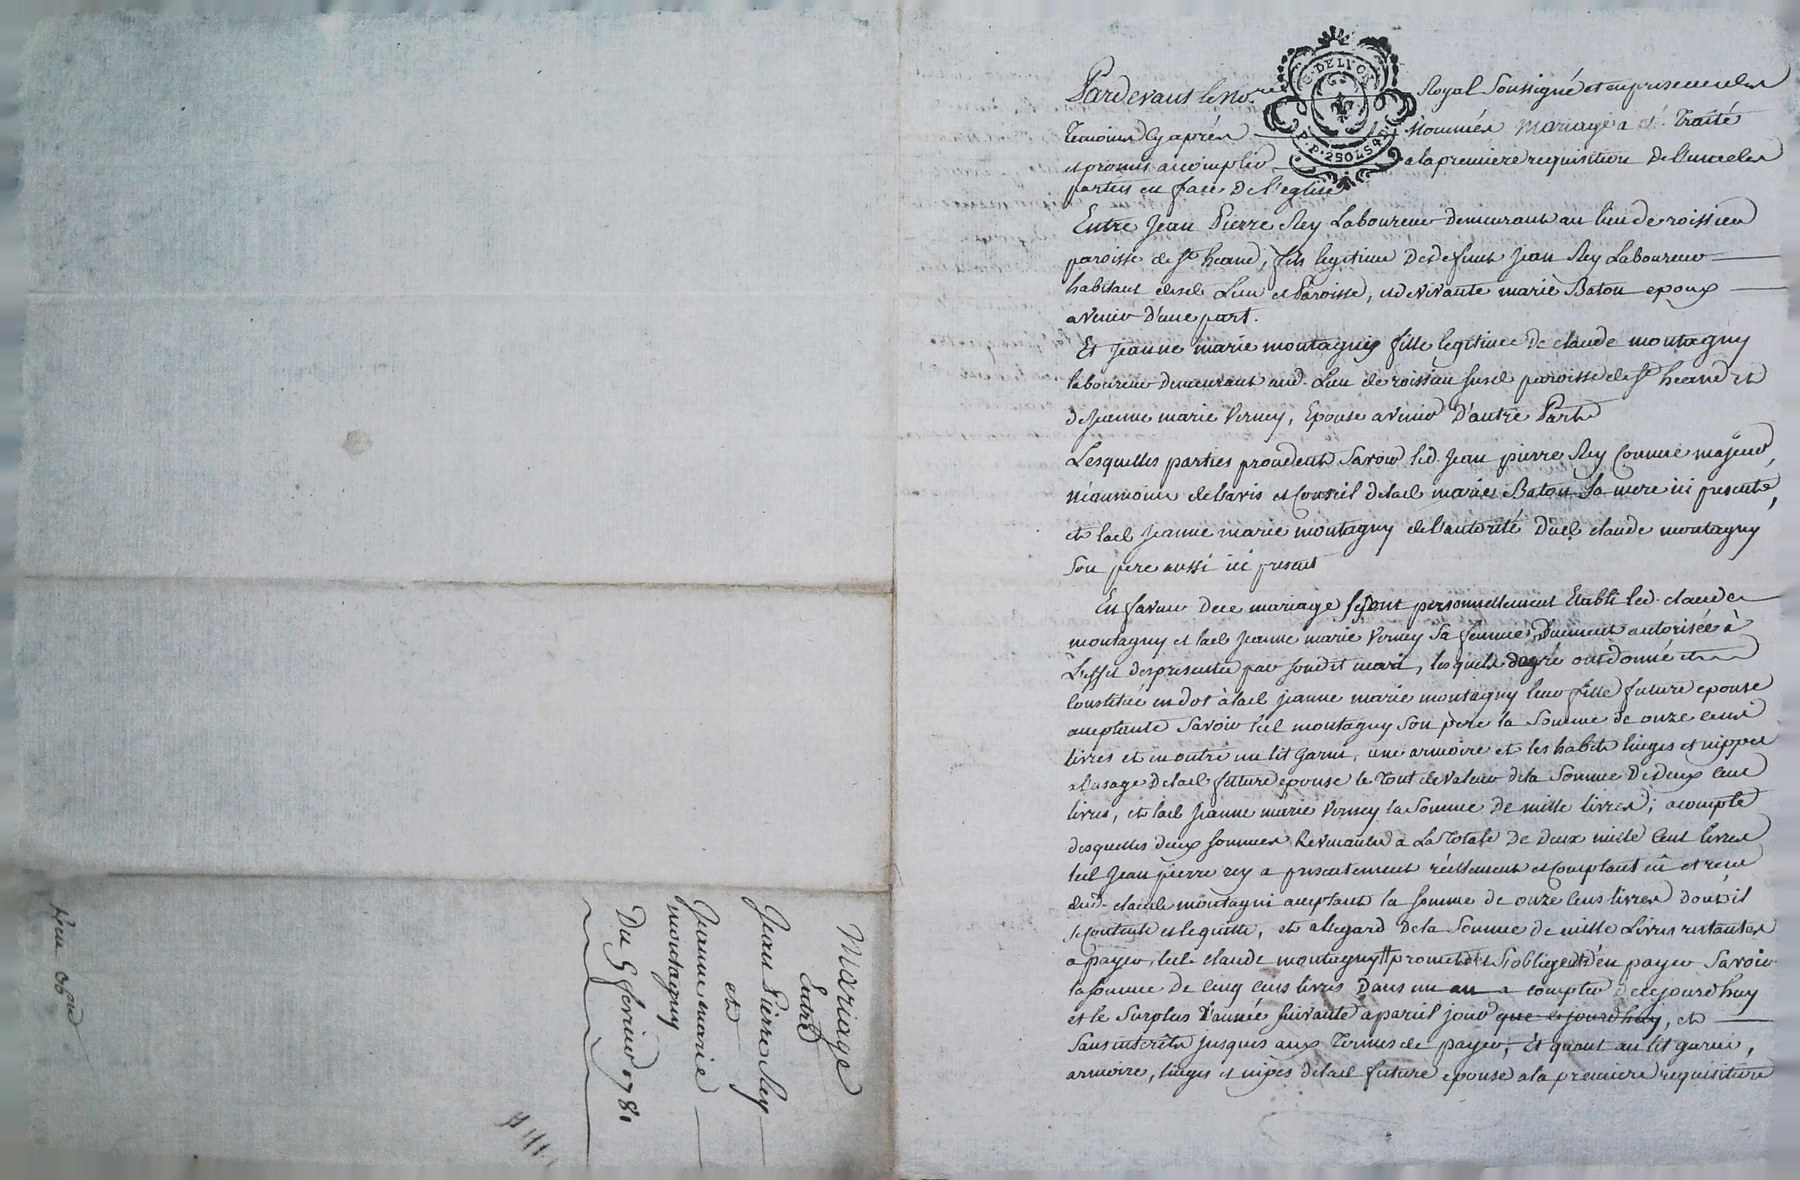 Pardevant le No.re Royal Soussigné et en presence des
temoins cy après Nommés mariage a été traité
et promis accomplir a la premiere requisition de l'une des
parties en face de l'eglise
Entre Jean Pierre Rey Laboureur demeurant au lieu de roissieu
paroisse de St heand, fils legitime de defunt Jean Rey Laboureur
habitant dud. Lieu et Paroisse, et de vivante marie Baton epoux
avenir d'une part.
Et Jeanne marie montagny fille legitime de claude montagny
laboureur demeurant aud. Lieu de roissiau susd. paroisse de St heand et
de Jeanne marie Verney, Epouse avenir d'autre Part
Lesquelles parties procedent Savoir led. Jean pierre Rey Comme majeur,
néanmoins de l'avis et Conseil de lad. marie Baton Sa mere ici presente,
et lad. Jeanne marie montagny de l'autorité dud. claude montagny
Son pere aussi ici present
En faveur de ce mariage personnellement Etabli led. claude
montagny et lad. Jeanne marie Verney Sa femme, Duement autorisée à
L'effet des presentes par sondit mari, lesquels degré ont donné et
Constitué en dot à lad. Jeanne marie montagny leur fille future epouse
acceptante Savoir led. montagny Son père la Somme de onze cent
livres et en outre un lit Garni, une armoire et les habits linges et nippes
a l'usage de lad. future epouse le tout de valeur de la Somme de deux cent
livres, et lad. Jeanne marie Verney la Somme de mille livres; acompte
desquelles deux Sommes Revenantes a La totale de deux mille Cent livres
led. Jean pierre rey a presentement réellement et comptant eû et recu
dud. claude montagni acceptant la somme de onze Cens livres dont il
se contente et le quitte, et a l'egard de la Somme de mille Livres restantes
a payer, led. claude montagny promet et S'oblige d'en payer Savoir
la somme de Cinq cens livres Dans un an a compter de cejourd'huy
et le Surplus l'année suivante a pareil jour que cejourd'huy, et
Sans intérêts jusques aux termes de payer, et quant au lit garni,
armoire, linges et nipes de lad. future epouse a la premiere requisition
G. DE LYON
P.P. 2 SOLS 4 D
Mariage
Entre
Jean Pierre Rey
et
Jeanne marie
montagny
Du 5 fevrier 1781